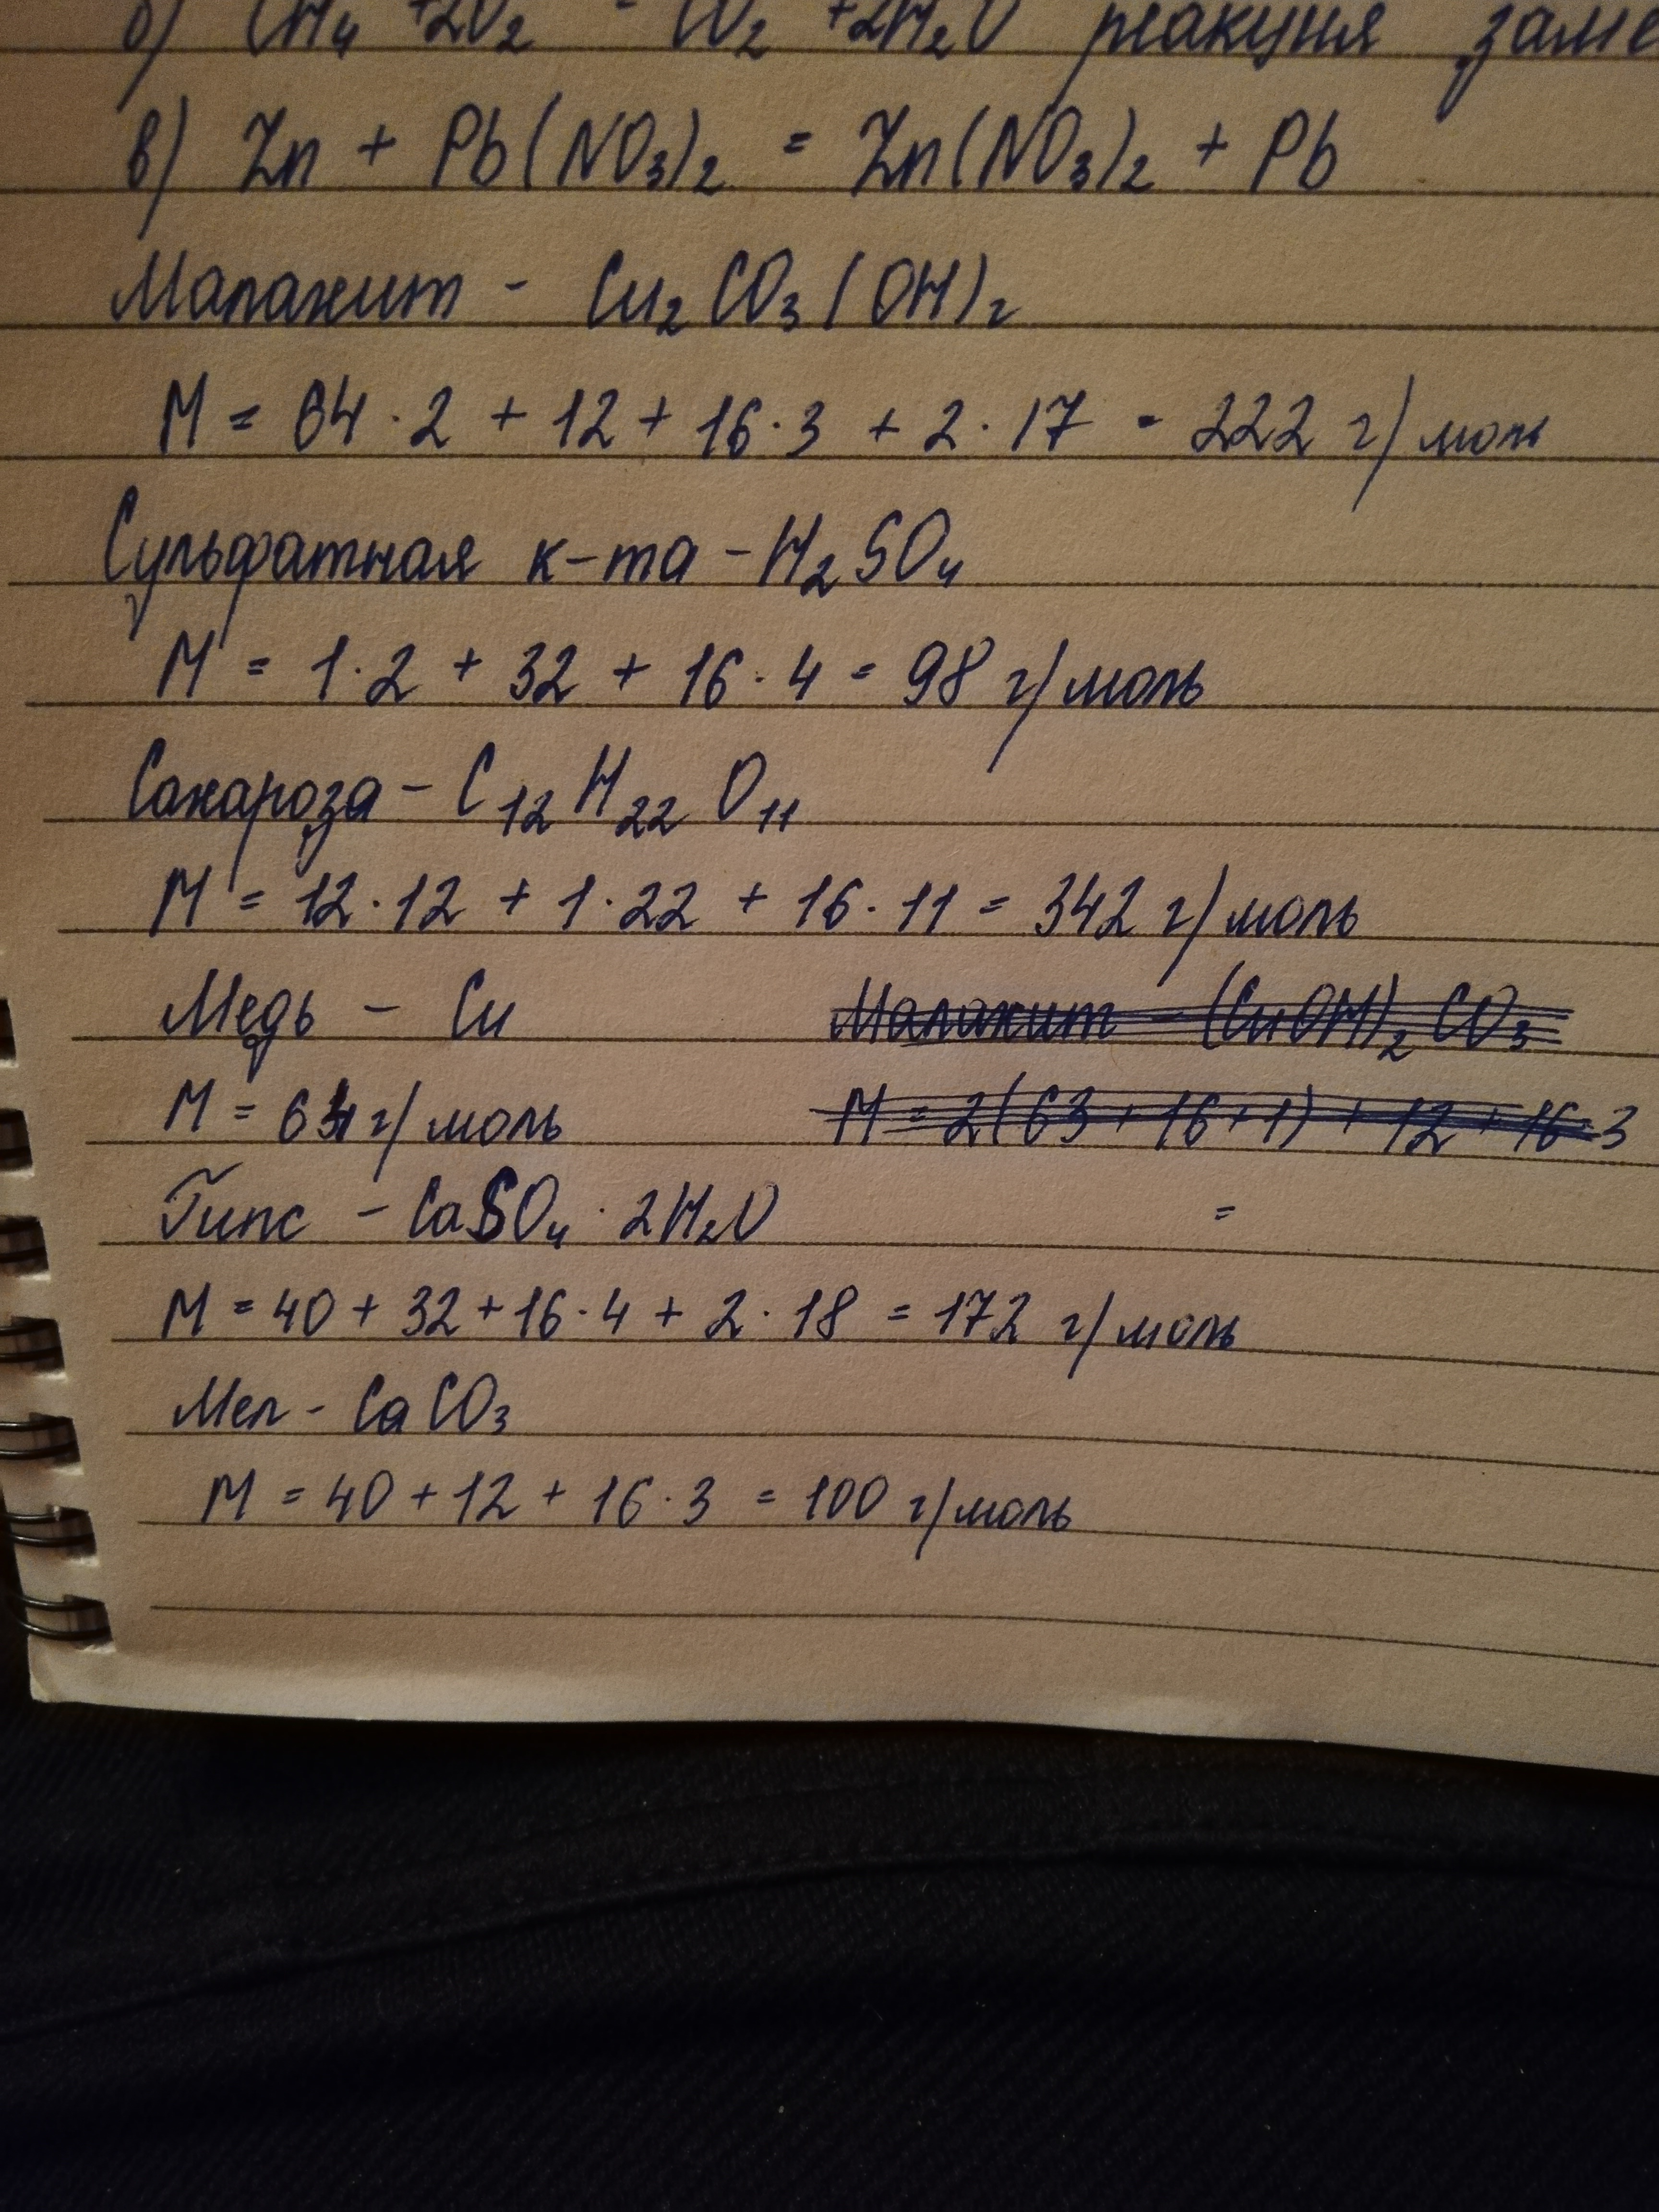 б) CH₄ + 2O₂ = CO₂ + 2H₂O реакция заме
в) Zn + Pb(NO₃)₂ = Zn(NO₃)₂ + Pb
Малахит - Cu₂CO₃(OH)₂
M = 64 · 2 + 12 + 16 · 3 + 2 · 17 = 222 г/моль
Сульфатная к-та - H₂SO₄
M = 1 · 2 + 32 + 16 · 4 = 98 г/моль
Сахароза - C₁₂H₂₂O₁₁
M = 12 · 12 + 1 · 22 + 16 · 11 = 342 г/моль
Медь - Cu Малахит - (CuOH)₂CO₃
M = 64 г/моль M = 2(63 + 16 + 1) + 12 + 16 · 3
Гипс - CaSO₄ · 2H₂O =
M = 40 + 32 + 16 · 4 + 2 · 18 = 172 г/моль
Мел - CaCO₃
M = 40 + 12 + 16 · 3 = 100 г/моль